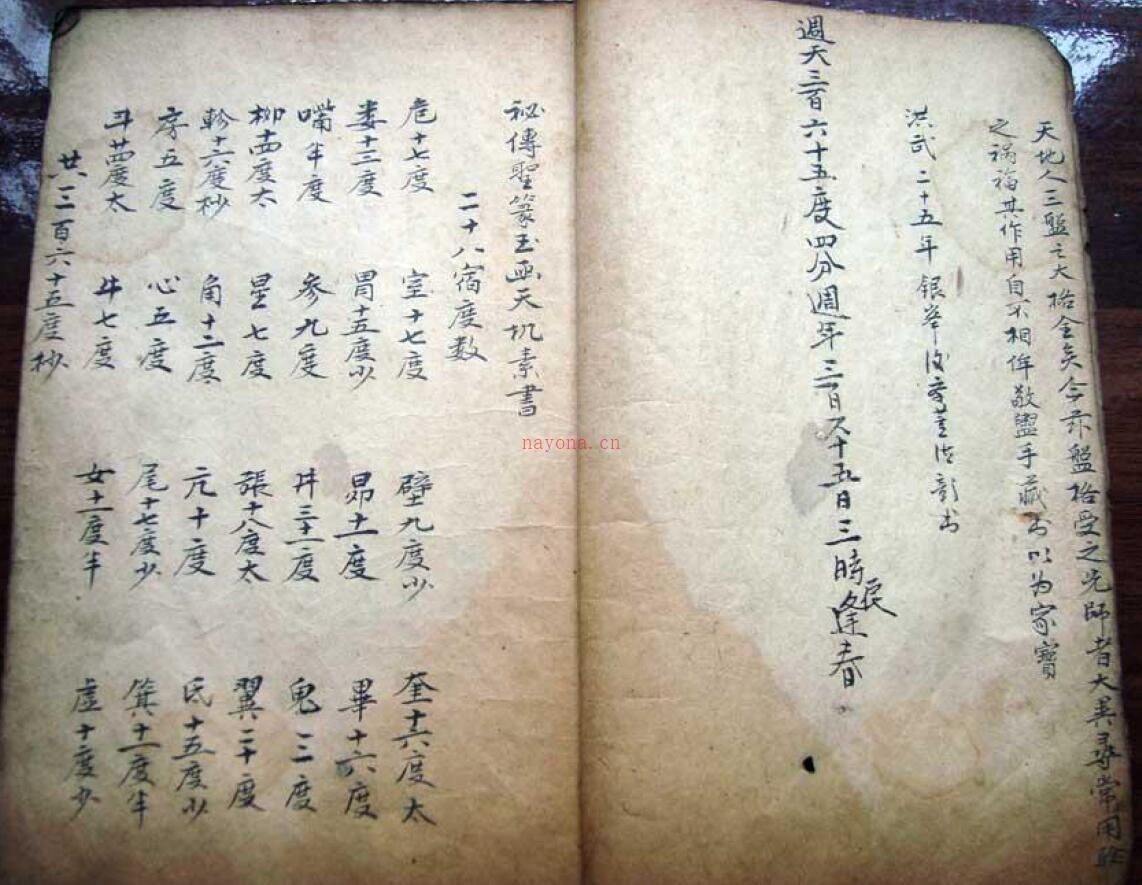 天地人三盤之大格全矣今茲盤格受之先師者大異尋常用驗
之禍福其作用自不相侔敬盥手藏書以为家寶
洪武二十五年銀峯後
週天三百六十五度四分週年三百六十五日三時辰逢春
秘傳聖篆玉函天机素書
二十八宿度数
危十七度 室十七度 壁九度少 奎十六度太
娄十二度 胃十五度少 昴十一度 畢十六度
嘴半度 參九度 井三十一度 鬼二度
柳十四度太 星七度 張十八度太 翼二十度
軫十六度杪 角十二度 亢十度 氐十五度少
房五度 心五度 尾十七度少 箕十一度半
斗廿四度太 牛七度 女十一度半 虛十度少
共三百六十五度杪
nayona.cn